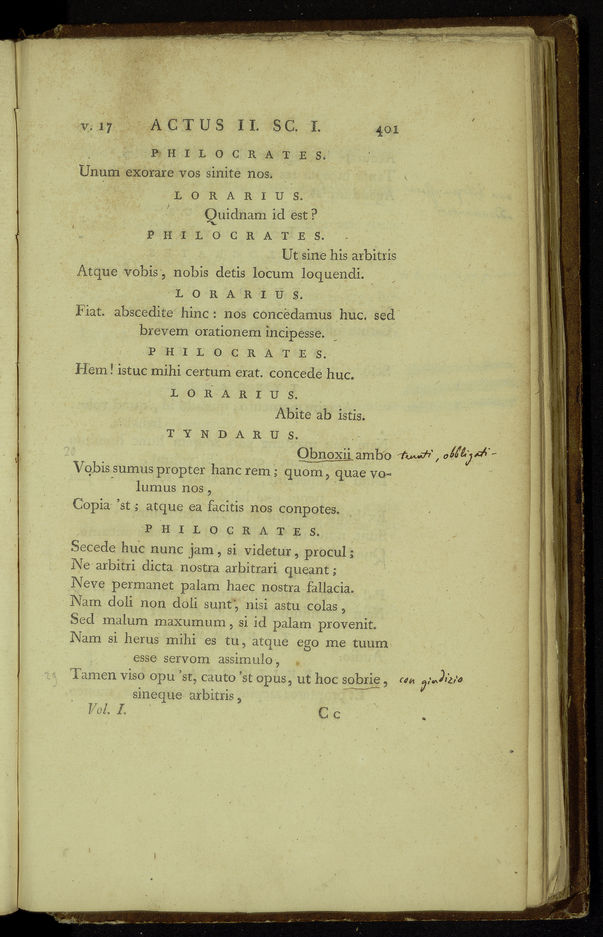 v. 17 ACTUS II. SC. I. 401
PHILOCRATES.
Unum exorare vos sinite nos.
LORARIUS.
Quidnam id est?
PHILOCRATES.
Ut sine his arbitris
Atque vobis, nobis detis locum loquendi.
LORARIUS.
Fiat. abscedite hinc: nos concedamus huc. sed
brevem orationem incipesse.
PHILOCRATES.
Hem! istuc mihi certum erat. concede huc.
LORARIUS.
Abite ab istis.
TYNDARUS.
20 Obnoxii ambo tenuti, obbligati-
Vobis sumus propter hanc rem; quom, quae vo-
lumus nos,
Copia 'st; atque ea facitis nos conpotes.
PHILOCRATES.
Secede huc nunc jam, si videtur, procul;
Ne arbitri dicta nostra arbitrari queant;
Neve permanet palam haec nostra fallacia.
Nam doli non doli sunt, nisi astu colas,
Sed malum maxumum, si id palam provenit.
Nam si herus mihi es tu, atque ego me tuum
esse servom assimulo,
Tamen viso opu 'st, cauto 'st opus, ut hoc sobrie, con giudizio
sineque arbitris,
Vol. I. Cc